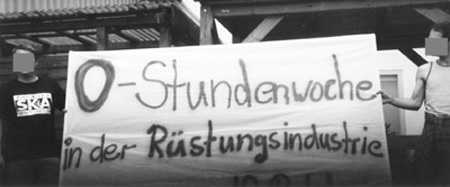 0-Stundenwoche
in der Rüstungsindustrie
SKA